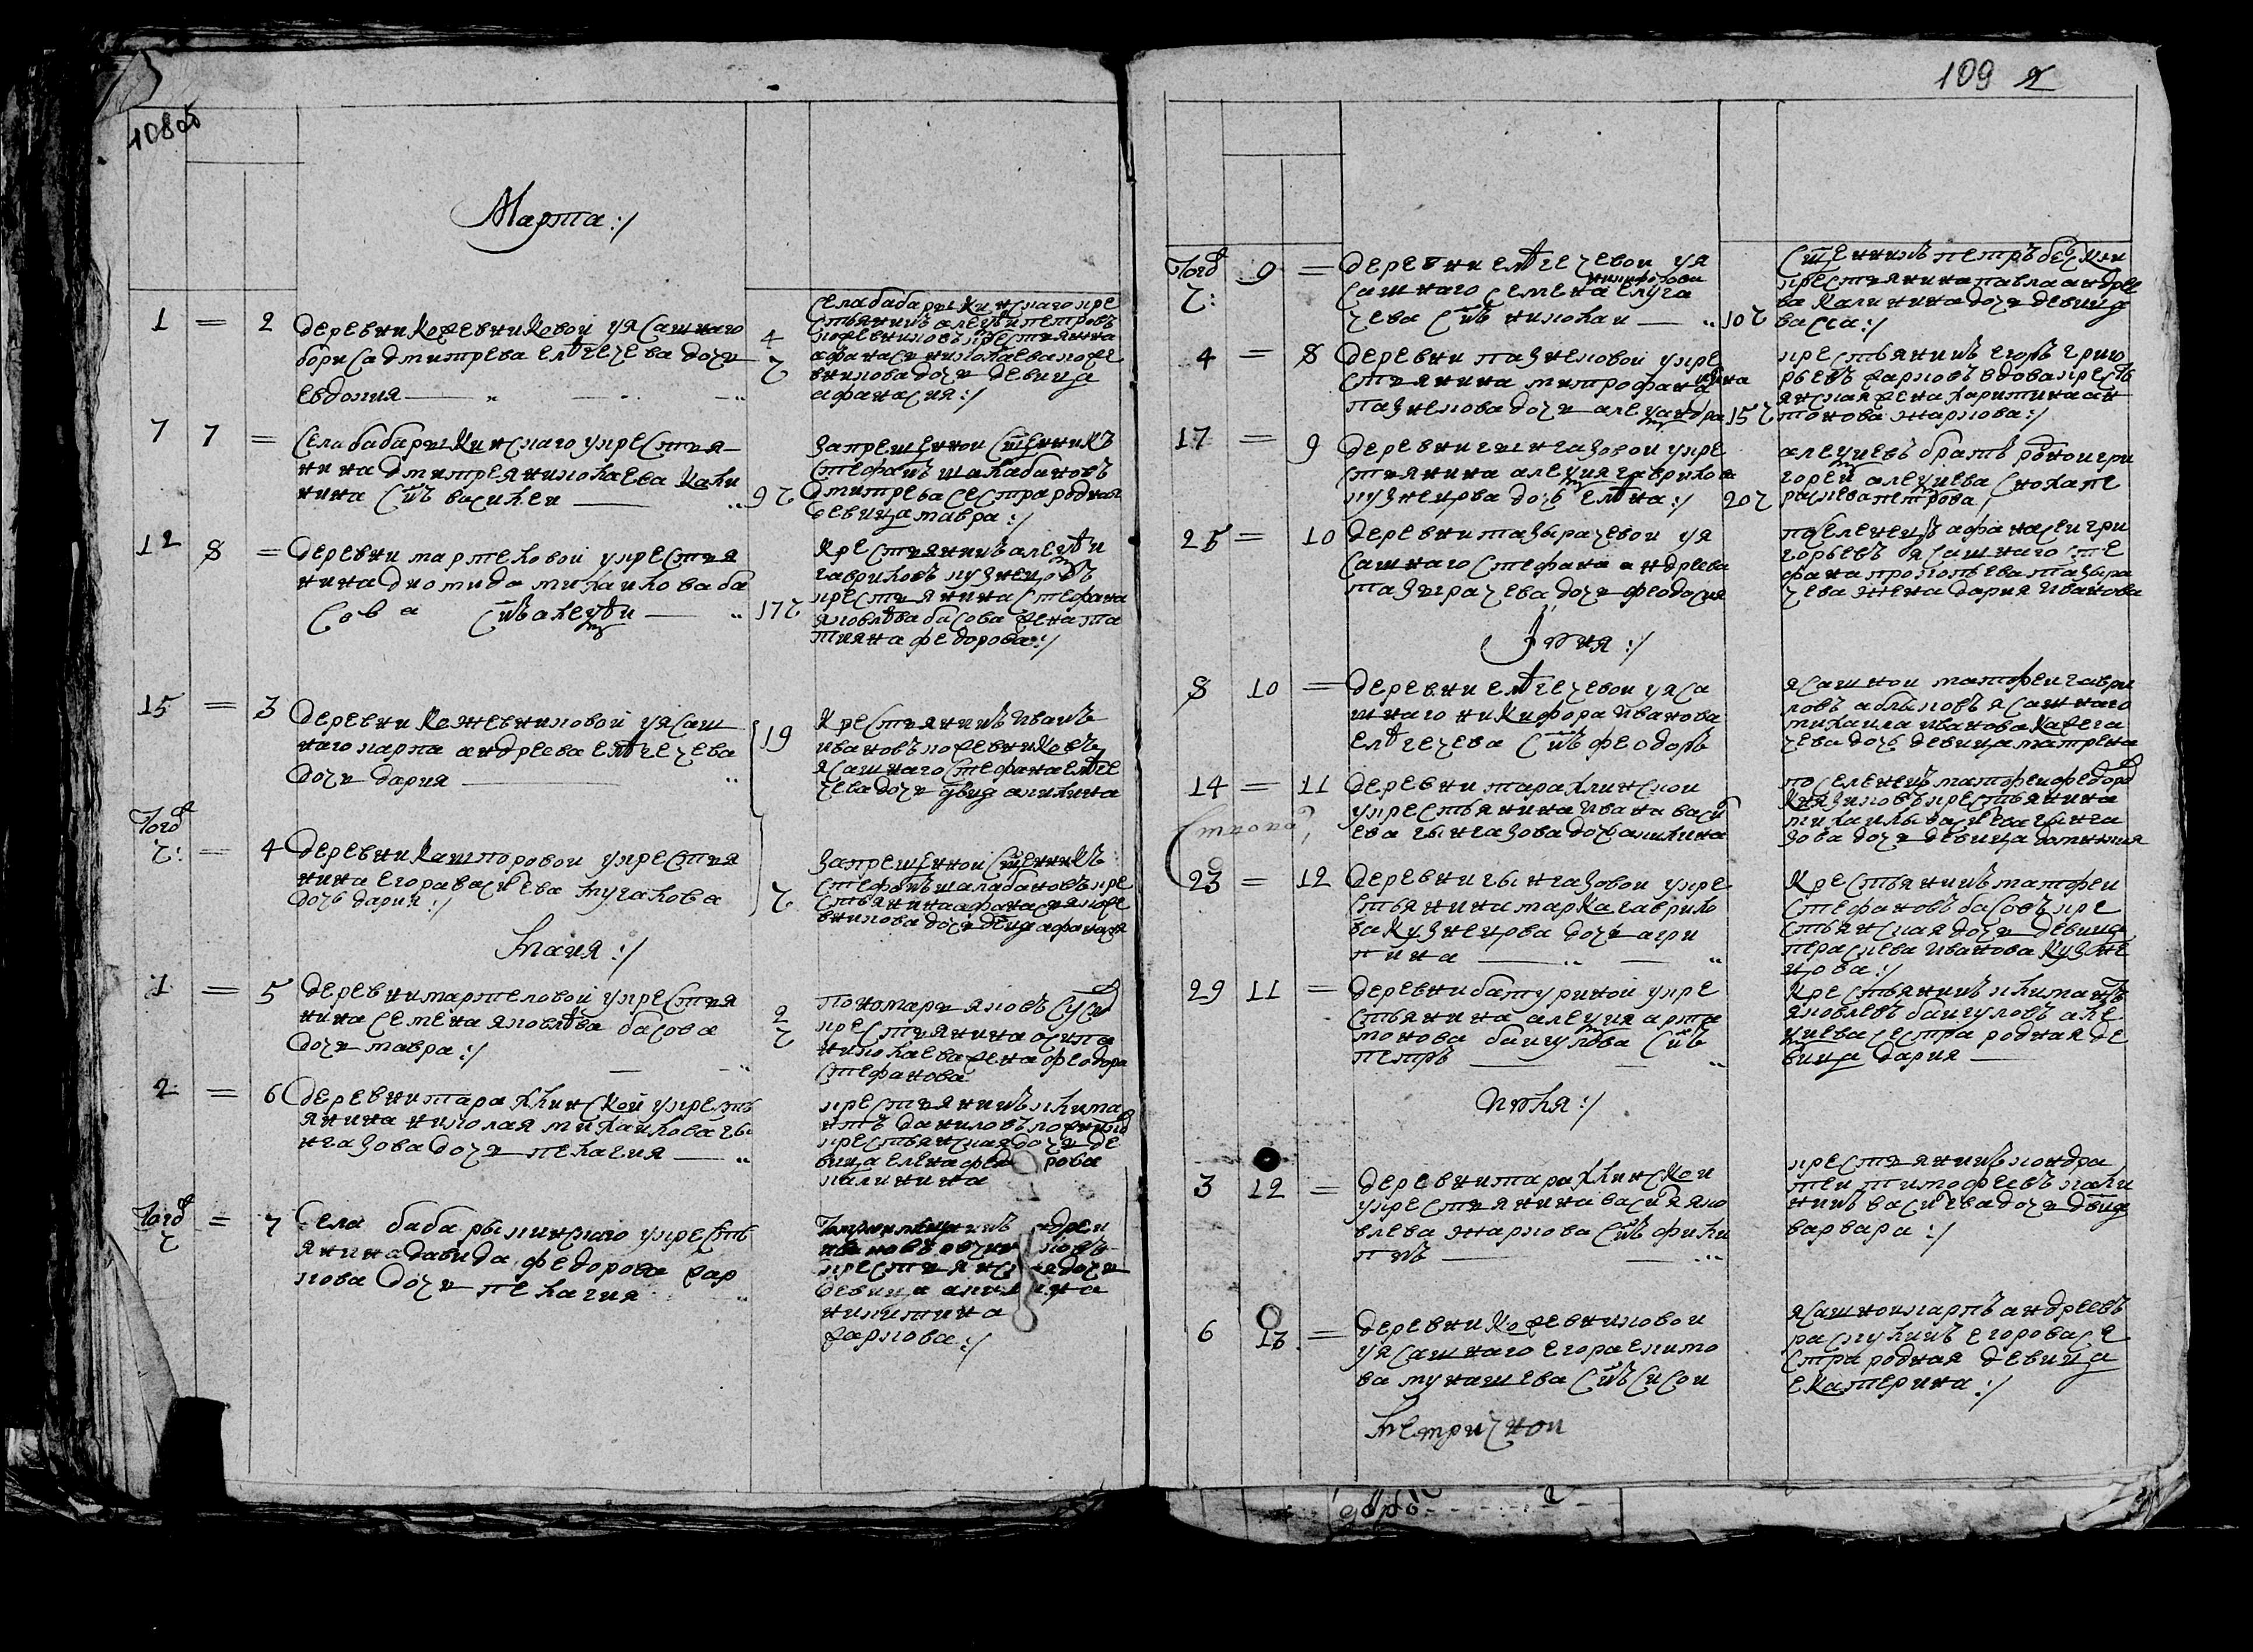 108об
Марта:/
1 = 2
деревни Кожевниковой у ясашнаго
бориса дмитрева елѣгечева дочь
евдокия
4
ч
села бабарыкинскаго кре
стьянинъ алеѯѣй петровъ
кожевниковъ крестьянина
афанасия николаева коже
вникова дочь девица
афанасия:/
7 7 =
села бабарыкинскаго у крестья
нина дмитрея николаева кали
нина сн҃ъ василеи
9 ч
запрещенной сщ҃енникъ
стефанъ шалабановъ
дмитрева сестра родная
девица мавра:/
12 8 =
деревни мартеловой у крестья
нина диомида михаилова ба
сова сн҃ъ алеѯѣй
17 ч
крестьянинъ алеѯѣй
гавриловъ кузнецовъ
крестьянина стефана
яковлева басова жена та
тияна федорова:/
15 = 3
деревни кожевниковой у ясаш
наго карпа андреева елѣгечева
дочь дария
19
крестьянинъ иванъ
ивановъ кожевниковъ
ясашнаго стефана елѣге
чева дочь двица акилина
тогож
ч: = 4
деревни кашторовой у крестья
нина егора василева тугалова
дочь дария:/
ч
запрещенной сщ҃енникъ
стефанъ шалабановъ кре
стьянина афанасия коже
вникова дочь девица афанасия
маия:/
1 = 5
деревни мартеловой у крестья
нина семена яковлева басова
дочь мавра:/
2
ч
пономарь яковъ
крестьянина осипа
николаева жена феодора
стефанова
2 = 6
деревни тараклинской у крестьь
янина николая михаилова гы
нгазова дочь пелагия
крестьянинъ климан
нтъ даниловъ
крестьянская дочь де
вица елена федорова
калинина
тогож
ч = 7
села бабарыкинскаго у крестьь
янина давида федорова жар
кова дочь пелагия
андреи
крестьянская дочь
девица акилина
никитина
жаркова:/
109 2
тогож 9 =
ч:
деревни елѣгечевой у я
никифорова
сашнаго семена елуга
чева сн҃ъ николаи
10 ч
сщ҃енникъ петръ
крестьянина павла андрее
ва калинина дочь девица
васса:/
4 = 8
деревни казнековой у кре
стьянина митрофана
казнекова дочь алеѯандра
15 ч
крестьянинъ егоръ григо
рьевъ жарковъ вдова кресть
янская жена харитина ан
тонова жаркова:/
17 = 9
деревни гынгазовой у кре
стьянина алеѯия гаврилова
кузнецова дочь елена:/
20 ч
алеѯиевъ братъ родной гри
горей алеѯиева сноха пе
раскева петрова
25 = 10
деревни тазырачевой у я
сашнаго стефана андреева
тазырачева дочь феодосия
поселенецъ афанасеи гри
горьевъ ясашнаго сте
фана прокопьева тазыра
чева жена дария иванова
Iюня:/
8 10 =
деревни елѣгечевой у яса
шнаго никифора иванова
елѣгечева сн҃ъ феодоръ
ясашной матфеи гаври
ловъ аблыковъ ясашнаго
михаила иванова
дочь девица матрена
14 = 11
деревни тараклинской
у крестьянина ивана васил
ева гынгазова дочь акилина
поселенецъ матфеи федоров
князиковъ крестьянина
михаилы василева гынга
зова дочь девица домникия
23 = 12
деревни гынгазовой у кре
стьянина марка гаврило
ва кузнецова дочь агри
пина
крестьянинъ матфеи
стефановъ басовъ кре
стьянская дочь девица
пераскева иванова кузне
цова:/
29 11 =
деревни батуриной у кре
стьянина алеѯия арта
монова баигулова сн҃ъ
петръ
крестьянинъ климантъ
яковлевъ баигуловъ алеѯ
ѯиева сестра родная де
вица дария
июля:/
3 12 =
деревни тараклинской
у крестьянина василя яко
влева жаркова сн҃ъ фили
ппъ
крестьянинъ кондра
теи тимофеевъ кали
нинъ василева дочь двица
варвара:/
6 13 =
деревни кожевниковой
у ясашнаго егора екимо
ва тукашева сн҃ъ сисои
ясашной карпъ андреевъ
раскукинъ егорова се
стра родная девица
екатерина:/
метрической